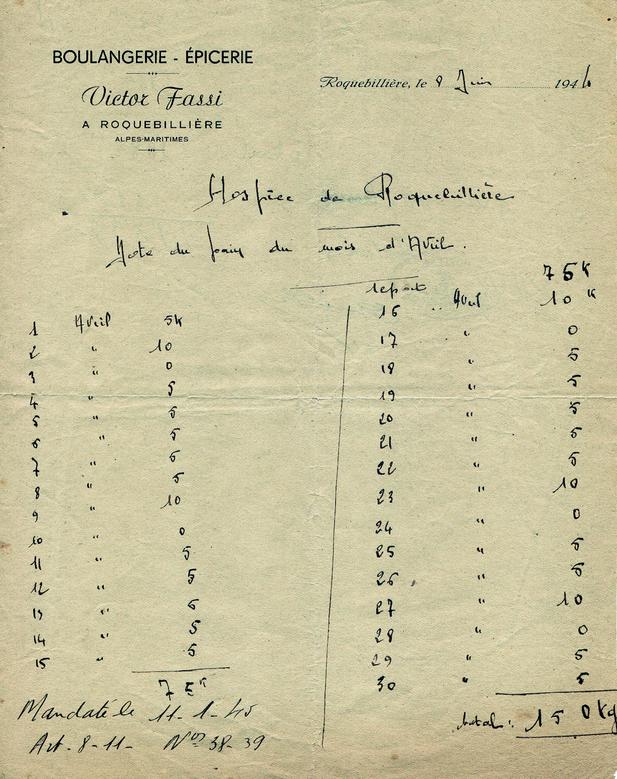 BOULANGERIE - ÉPICERIE
Victor Fassi
A ROQUEBILLIÈRE
ALPES-MARITIMES
Roquebillière, le 8 Juin 1944
Hospice de Roquebillière
Note du pain du mois d'Avril.
1 Avril 5k
2 " 10
3 " 0
4 " 5
5 " 5
6 " 5
7 " 5
8 " 5
9 " 10
10 " 0
11 " 5
12 " 5
13 " 5
14 " 5
15 " 5
75k
report 75k
16 " Avril 10k
17 " 0
18 " 5
19 " 5
20 " 5
21 " 5
22 " 5
23 " 10
24 " 0
25 " 5
26 " 5
27 " 10
28 " 0
29 " 5
30 " 5
total : 150 kg
Mandaté le 11-1-45
Art. 8-11- Nos 38-39